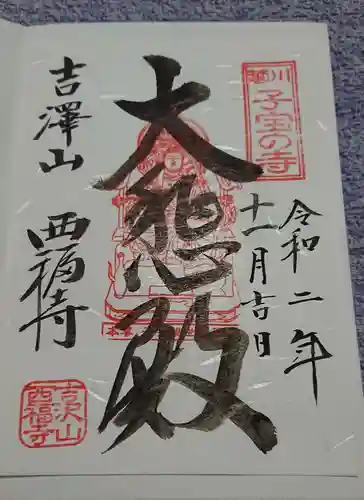 川越
子宝の寺
令和二年
十一月吉日
大悲殿
吉澤山
西福寺
吉沢山
西福寺